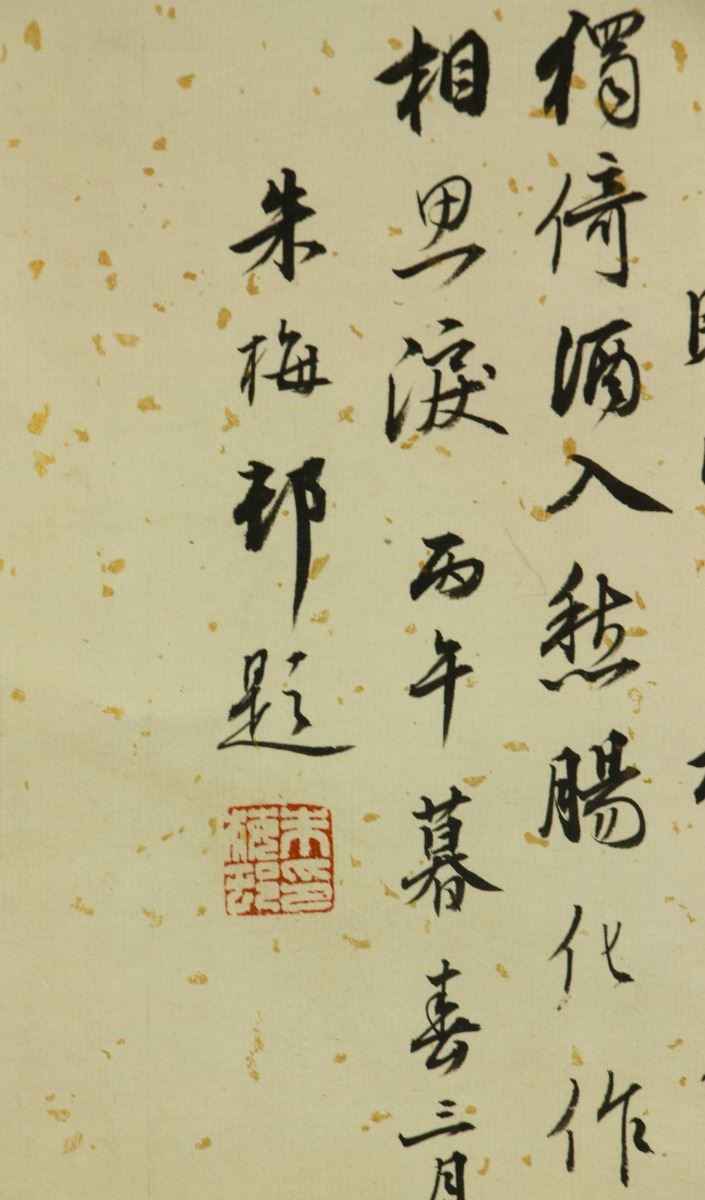 獨倚酒入愁腸化作
相思淚 丙午暮春三月
朱梅邨題
朱印梅邨